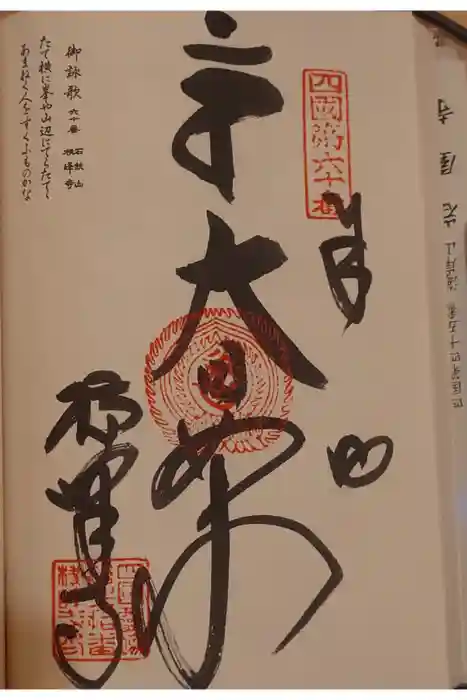 四國第六十番
大日如来
横峰寺
御詠歌 六十番 石鈇山 横峰寺
たて横に峯や山辺にてらたてゝ
あまねく人をすくふものかな
四国第四十五番 海岸山 岩屋寺